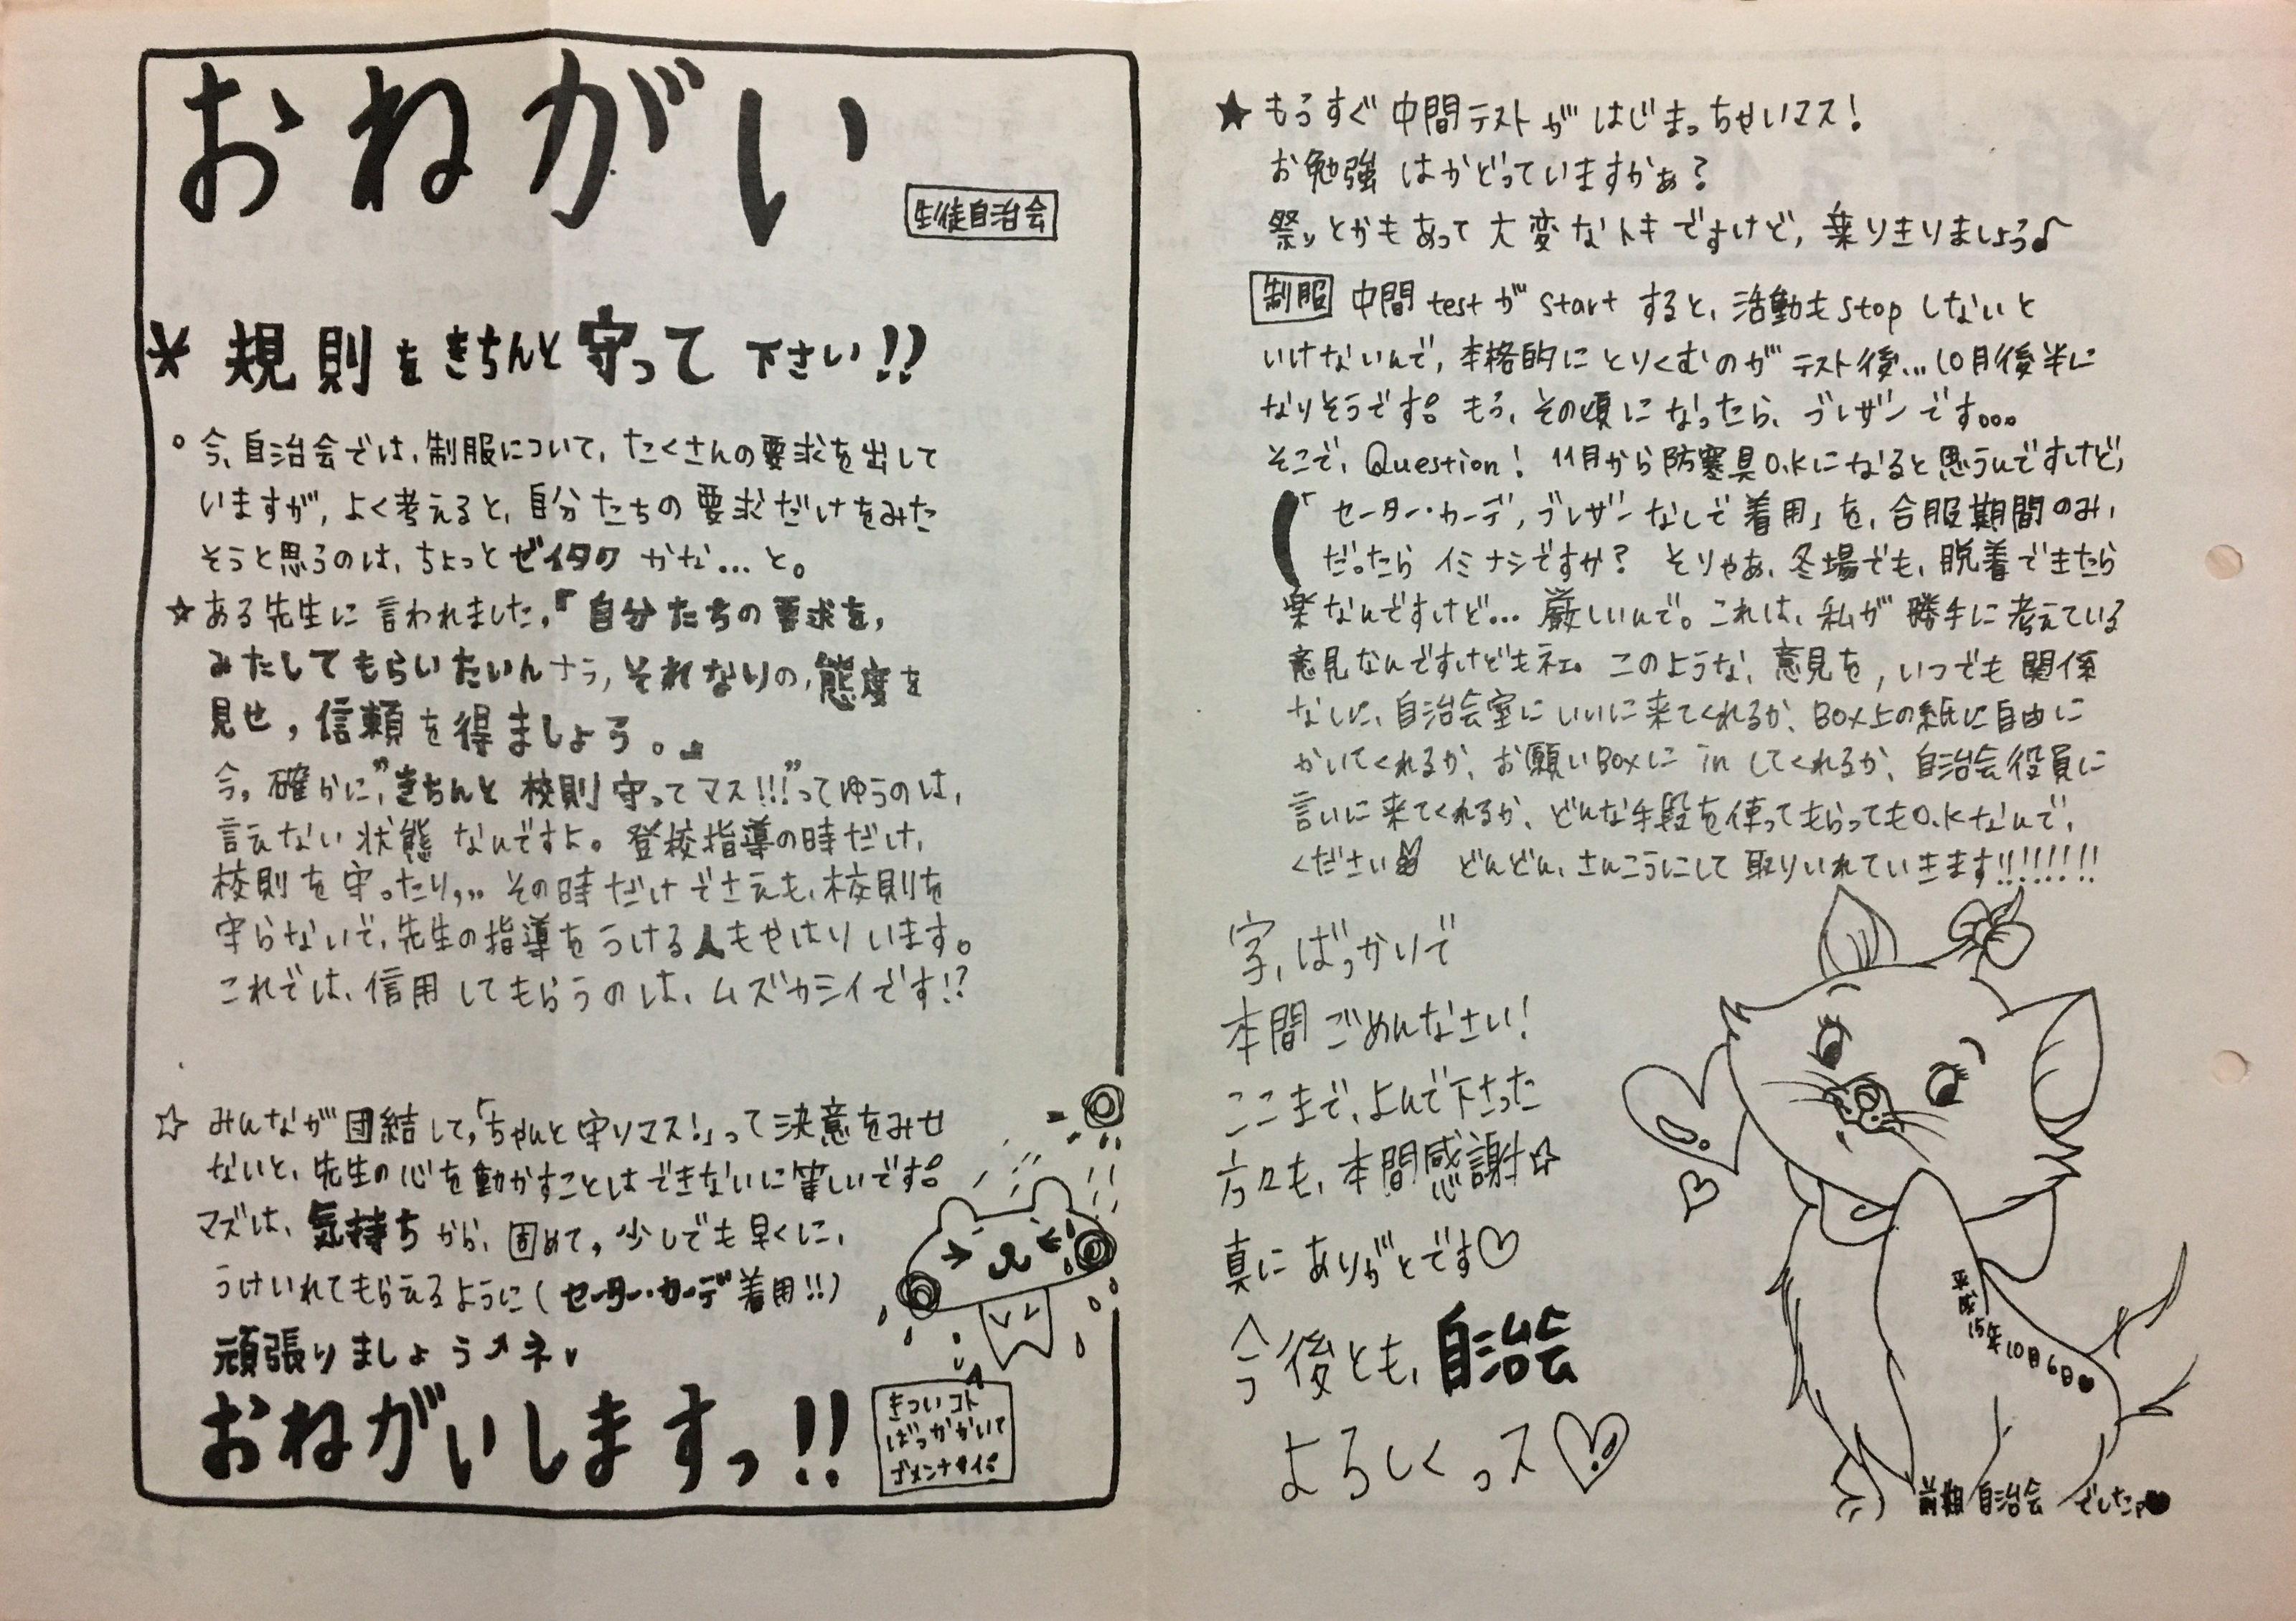 おねがい
生徒自治会
* 規則をきちんと守って下さい!!
○ 今、自治会では、制服について、たくさんの要求を出して
いますが、よく考えると、自分たちの要求だけをみた
そうと思うのは、ちょっとゼイタクかな…と。
☆ ある先生に言われました。「自分たちの要求を、
みたしてもらいたいんナラ、それなりの、態度を
見せ、信頼を得ましょう。」
今、確かに、"きちんと校則守ってマス!!!"ってゆうのは、
言えない状態なんですよ。登校指導の時だけ、
校則を守ったり,,, その時だけでさえも、校則を
守らないで、先生の指導をうける人もやはりいます。
これでは、信用してもらうのは、ムズカシイです!?
☆ みんなが団結して、「ちゃんと守りマス!」って決意をみせ
ないと、先生の心を動かすことはできないに等しいです。
マズは、気持ちから、固めて、少しでも早くに、
うけいれてもらえるように(セーター・カーデ着用!!)
頑張りましょうネ
おねがいしますっ!!
きついコト
ばっかかいて
ゴメンナサイ。
★ もうすぐ中間テストがはじまっちゃいマス!
お勉強はかどっていますかぁ?
祭りとかもあって大変なトキですけど、乗りきりましょう♪
制服 中間testがstartすると、活動もstopしないと
いけないんで、本格的にとりくむのがテスト後…10月後半に
なりそうです。もう、その頃になったら、ブレザーです。。。
そこで、Question! 11月から防寒具O.Kになると思うんですけど、
「セーター・カーデ,ブレザーなしで着用」を、合服期間のみ、
だったらイミナシですか? そりゃあ、冬場でも、脱着できたら
楽なんですけど… 厳しいんで。これは、私が勝手に考えている
意見なんですけどもネェ。このような、意見を、いつでも関係
なしに、自治会室にいいに来てくれるか、BOX上の紙に自由に
かいてくれるか、お願いBOXにinしてくれるか、自治会役員に
言いに来てくれるか、どんな手段を使ってもらってもO.Kなんで、
ください どんどん、さんこうにして取りいれていきます!!!!!!!
字、ばっかりで
本間ごめんなさい!
ここまで、よんで下さった
方々も、本間感謝☆
真にありがとです♡
今後とも、自治会
よろしくっス♡
平成15年10月6日♥
前期自治会でした♥